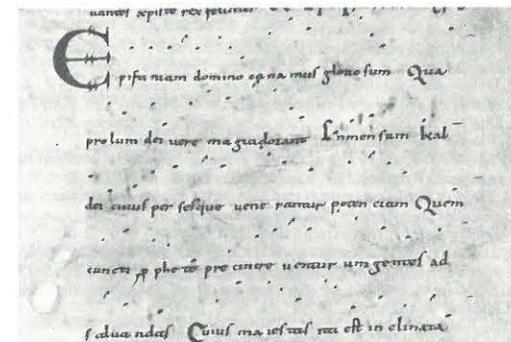 E pifa niam domino ca na mus glorio sum Qua
pro lum dei vere ma gui dorant Inmen sum kal
dei cuius per sesque vene rantur poten ciam Quem
cuncti p phe te pre cinere ventur um gentes ad
s alva ndas Cuius ma ies tas ita est in clinata